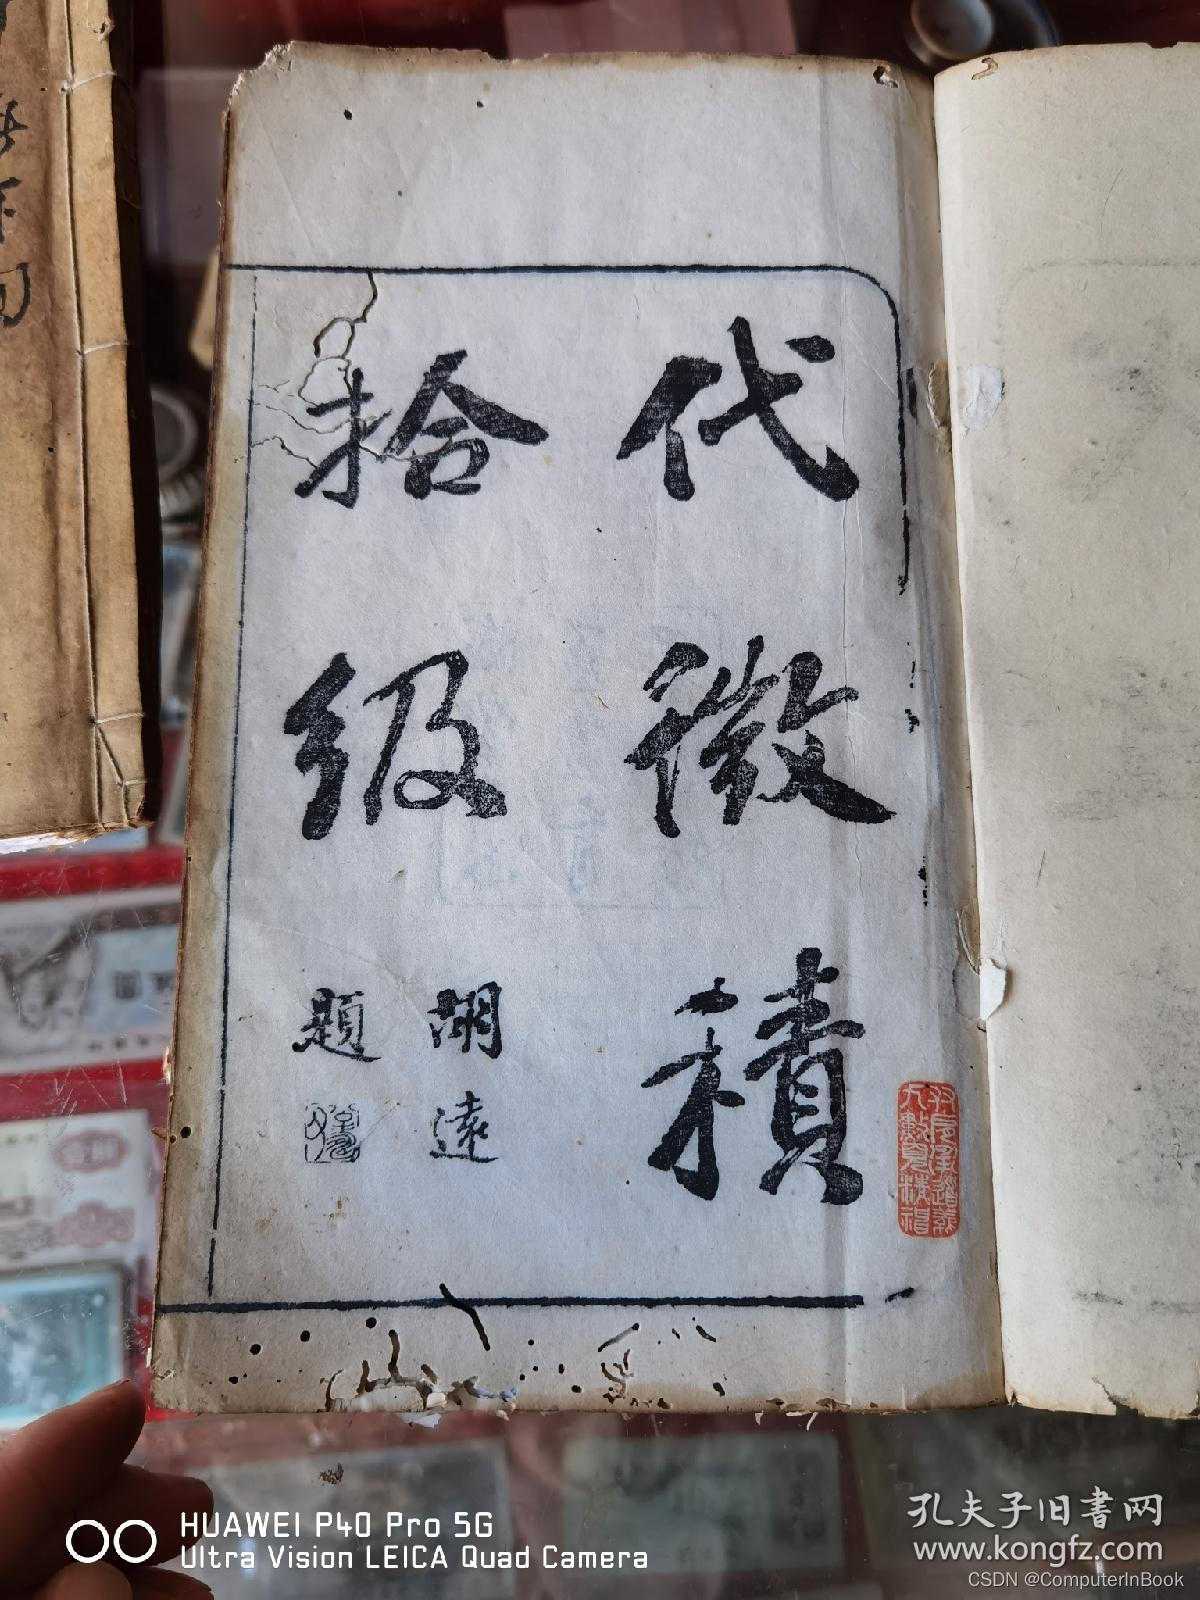 代微積
拾級
胡遠
題
HUAWEI P40 Pro 5G
Ultra Vision LEICA Quad Camera
孔夫子旧書网
www.kongfz.com
CSDN @ComputerInBook